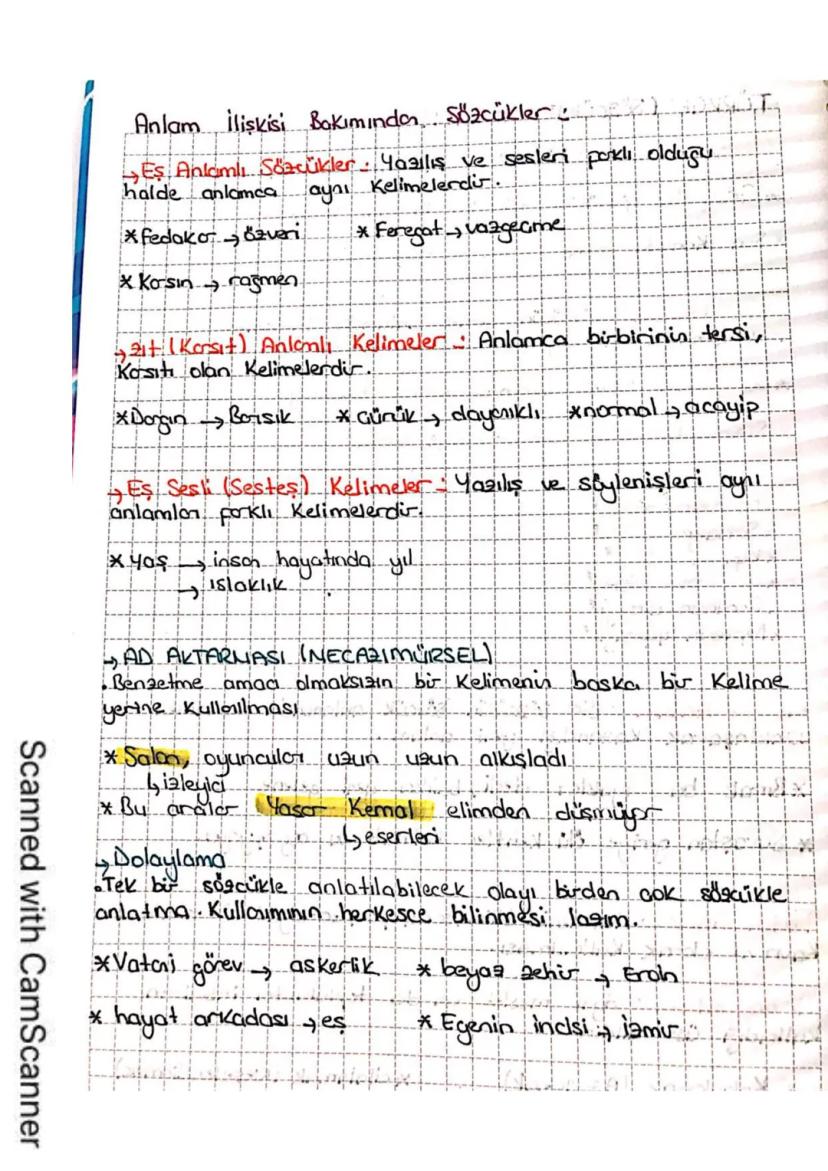 Anlam İlişkisi Bakımından Sözcükler:
→Eş Anlamlı Sözcükler: Yazılış ve sesleri farklı olduğu
halde anlamca aynı Kelimelerdir.
*Fedakar→özveri *Feragat→vazgeçme
*Karşın→rağmen
→Zıt (Karşıt) Anlamlı Kelimeler: Anlamca birbirinin tersi,
Kaşıtı olan Kelimelerdir.
*Dargın→Barışık *Çürük→dayanıklı *normal→acayip
→Eş Sesli (Sesteş) Kelimeler: Yazılış ve söylenişleri aynı
anlamları farklı Kelimelerdir.
*Yaş→insan hayatında yıl
→ıslaklık
→AD AKTARMASI (MECAZIMÜRSEL)
.Benzetme amacı olmaksızın bir Kelimenin başka bir Kelime
yerine Kullanılması
*Salon, oyuncuları uzun uzun alkışladı
↳izleyici
*Bu aralar Yaşar Kemal elimden düşmüyor
↳eserleri
→Dolaylama
.Tek bir sözcükle anlatılabilecek olayı birden çok sözcükle
anlatma. Kullanımının herkesce bilinmesi lazım.
*Vatani görev→askerlik *beyaz zehir→Eroin
*hayat arkadası→eş *Egenin incisi→izmir
Scanned with CamScanner